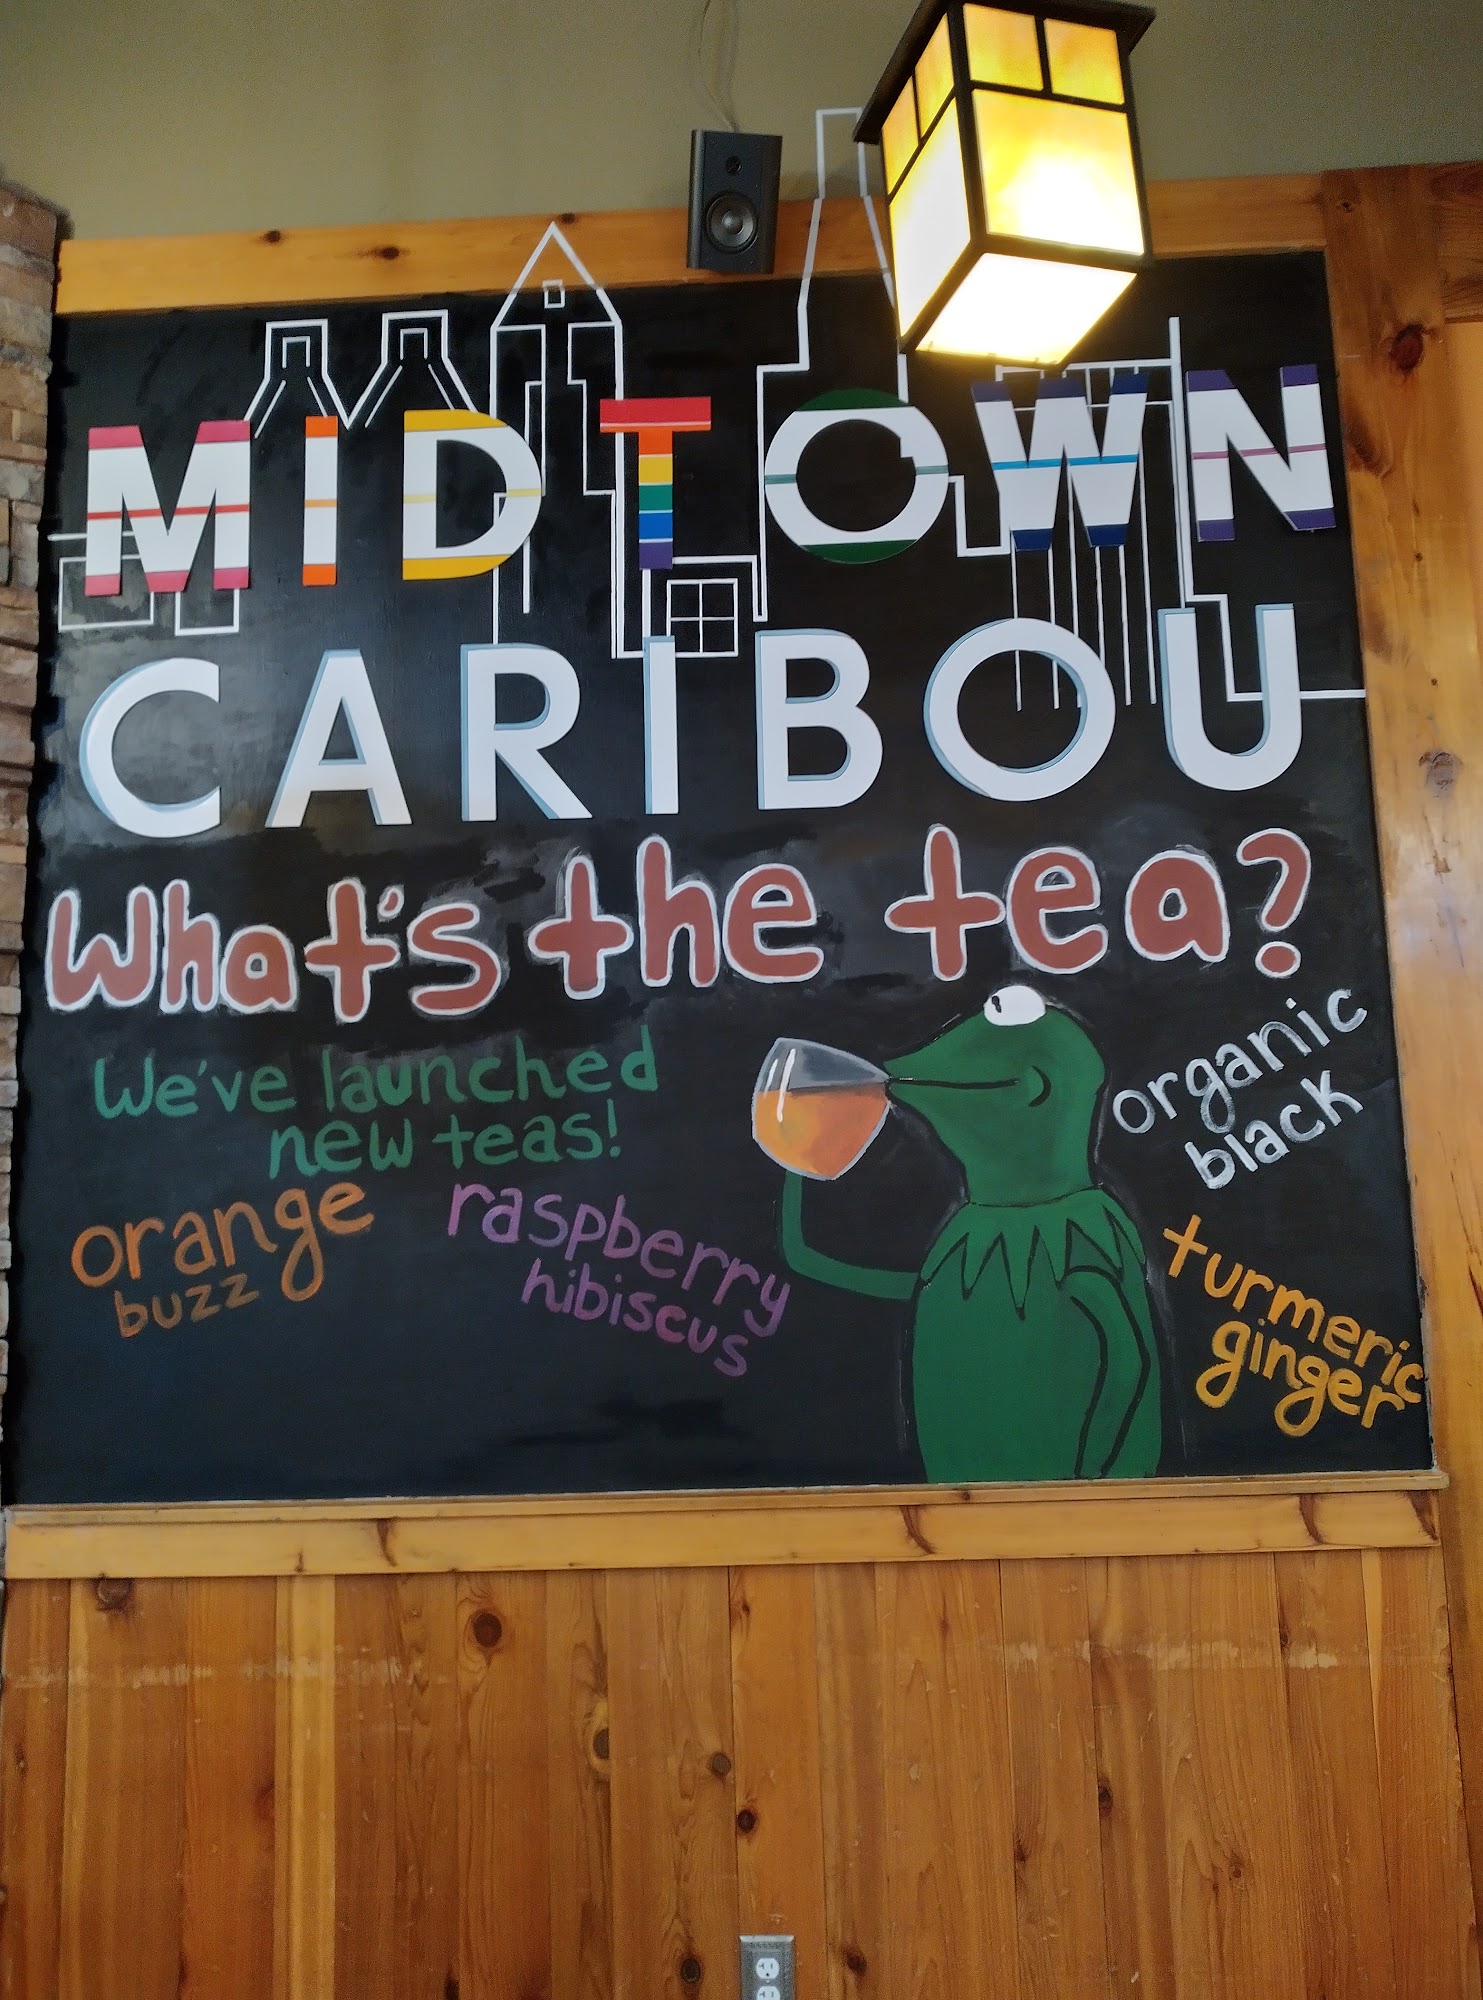 MIDTOWN
CARIBOU
What's the tea?
We've launched
new teas!
orange
buzz
raspberry
hibiscus
organic
black
turmeric
ginger